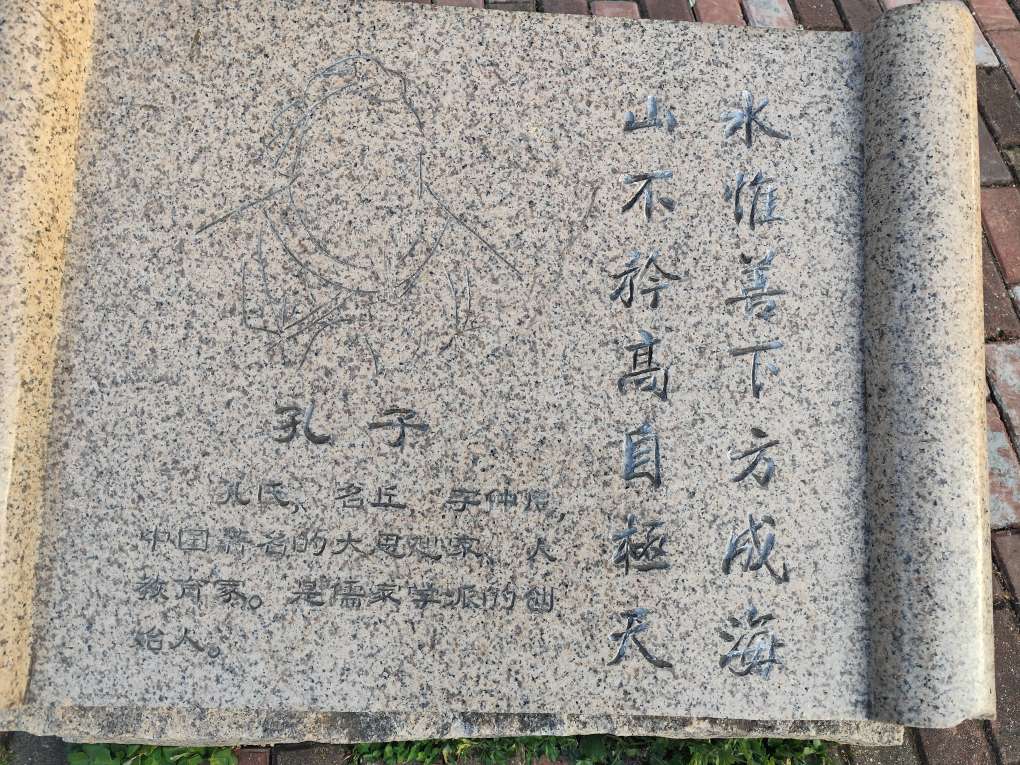 水惟善下方成海
山不矜高自極天
孔子
孔氏、名丘 字仲尼，
中国著名的大思想家、大
教育家。是儒家学派的创
始人。